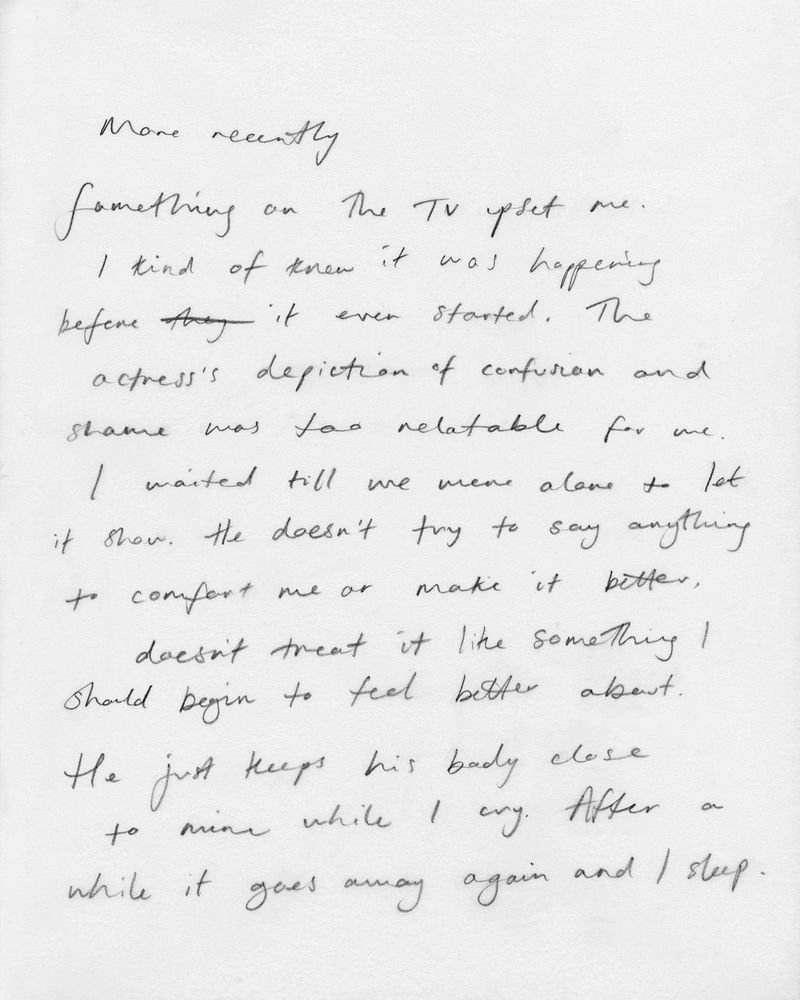 More recently
Something on the TV upset me.
I kind of knew it was happening
before they it even started. The
actress's depiction of confusion and
shame was too relatable for me.
I waited till we were alone to let
it show. He doesn't try to say anything
to comfort me or make it better,
doesn't treat it like something I
should begin to feel better about.
He just keeps his body close
to mine while I cry. After a
while it goes away again and I sleep.